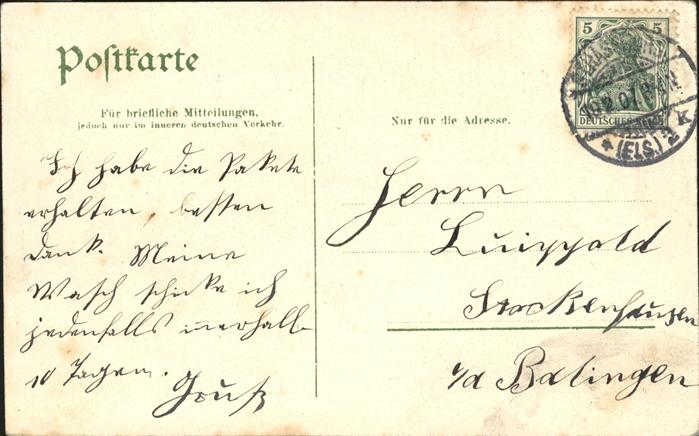 Postkarte
Für briefliche Mitteilungen,
jedoch nur im inneren deutschen Verkehr.
Ich habe die Pakete
erhalten, besten
Dank. Meine
Wasch schicke ich
jedenfalls innerhalb
10 Tagen.
Gruß
5 5
DEUTSCHES REICH
STRASSBURG
07
(ELS.) 2 k
Nur für die Adresse.
Herrn
Luippold
Stockenhausen
b/d Balingen